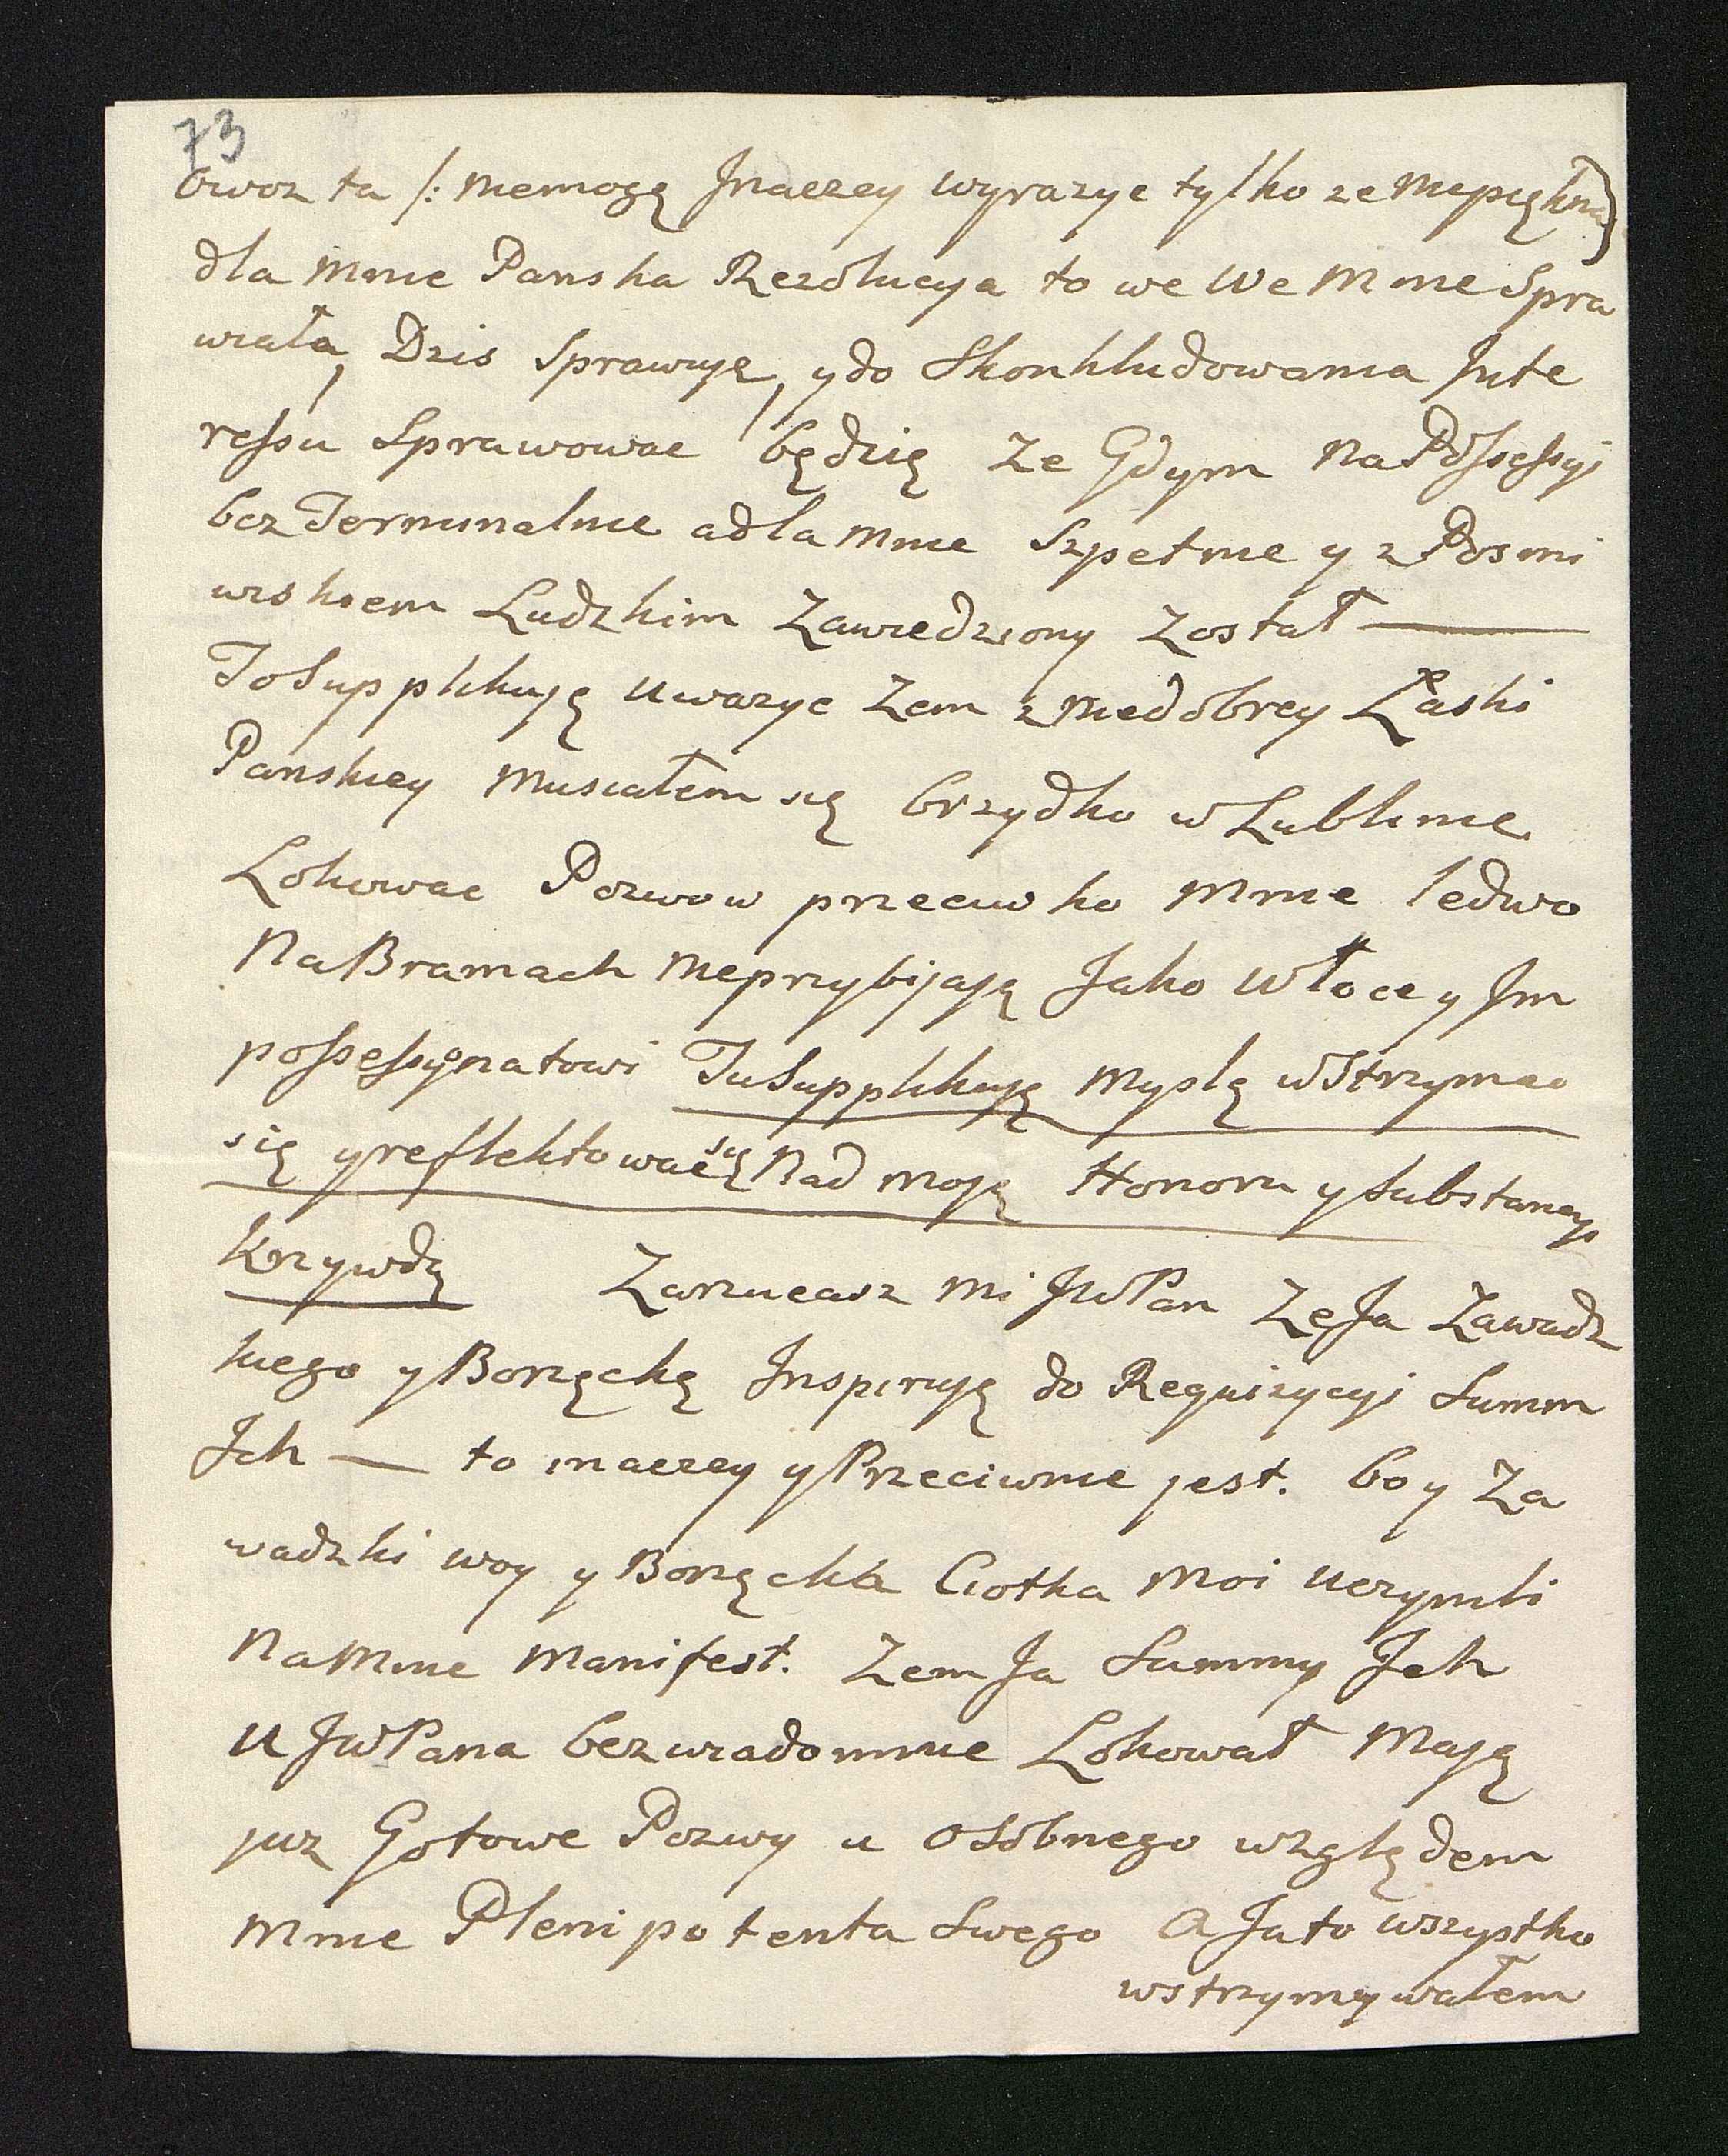 73
Owoz ta /: niemogę Jnaczey wyrazyc tylko ze niepiękna)
dla mnie Panska Rezolucya to we We mnie Spra
wiała, Dzis Sprawuię, y do Skonkludowania Jnte
ressu Sprawowac będzię Ze Gdym na Possessyi
bez Terminalnie a dla mnie Szpetnie y z Posmi
wiskiem Ludzkim Zawiedziony Został —
To Supplikuję uwazyc Zem z niedobrey Łaski
Panskiey musiałem się brzydko w Lublinie
Lokowac Pozwow przeciwko mnie ledwo
Na Bramach nieprzybijaią Jako Włocey Jm
possessyonatowi Tu Supplikuję myslę wstrzymac
się y reflektowac się Nad moją Honoru y Substancyi
Krzywdą Zarzucasz mi JWPan Ze Ja Zawadz
kiego y Borzęckę Jnspiruję do Requizycyi Summ
Jch — to inaczey y Przeciwnie jest. bo y Za
wadzki woy y Borzęcka Ciotka Moi uczynili
Na Mnie Manifest. Zem Ja Summy Jch
u JWPana bezwiadomnie Lokował Mają
juz Gotowe Pozwy u osobnego względem
Mnie Plenipotenta Swego A Ja to wszystko
wstrzymywałem